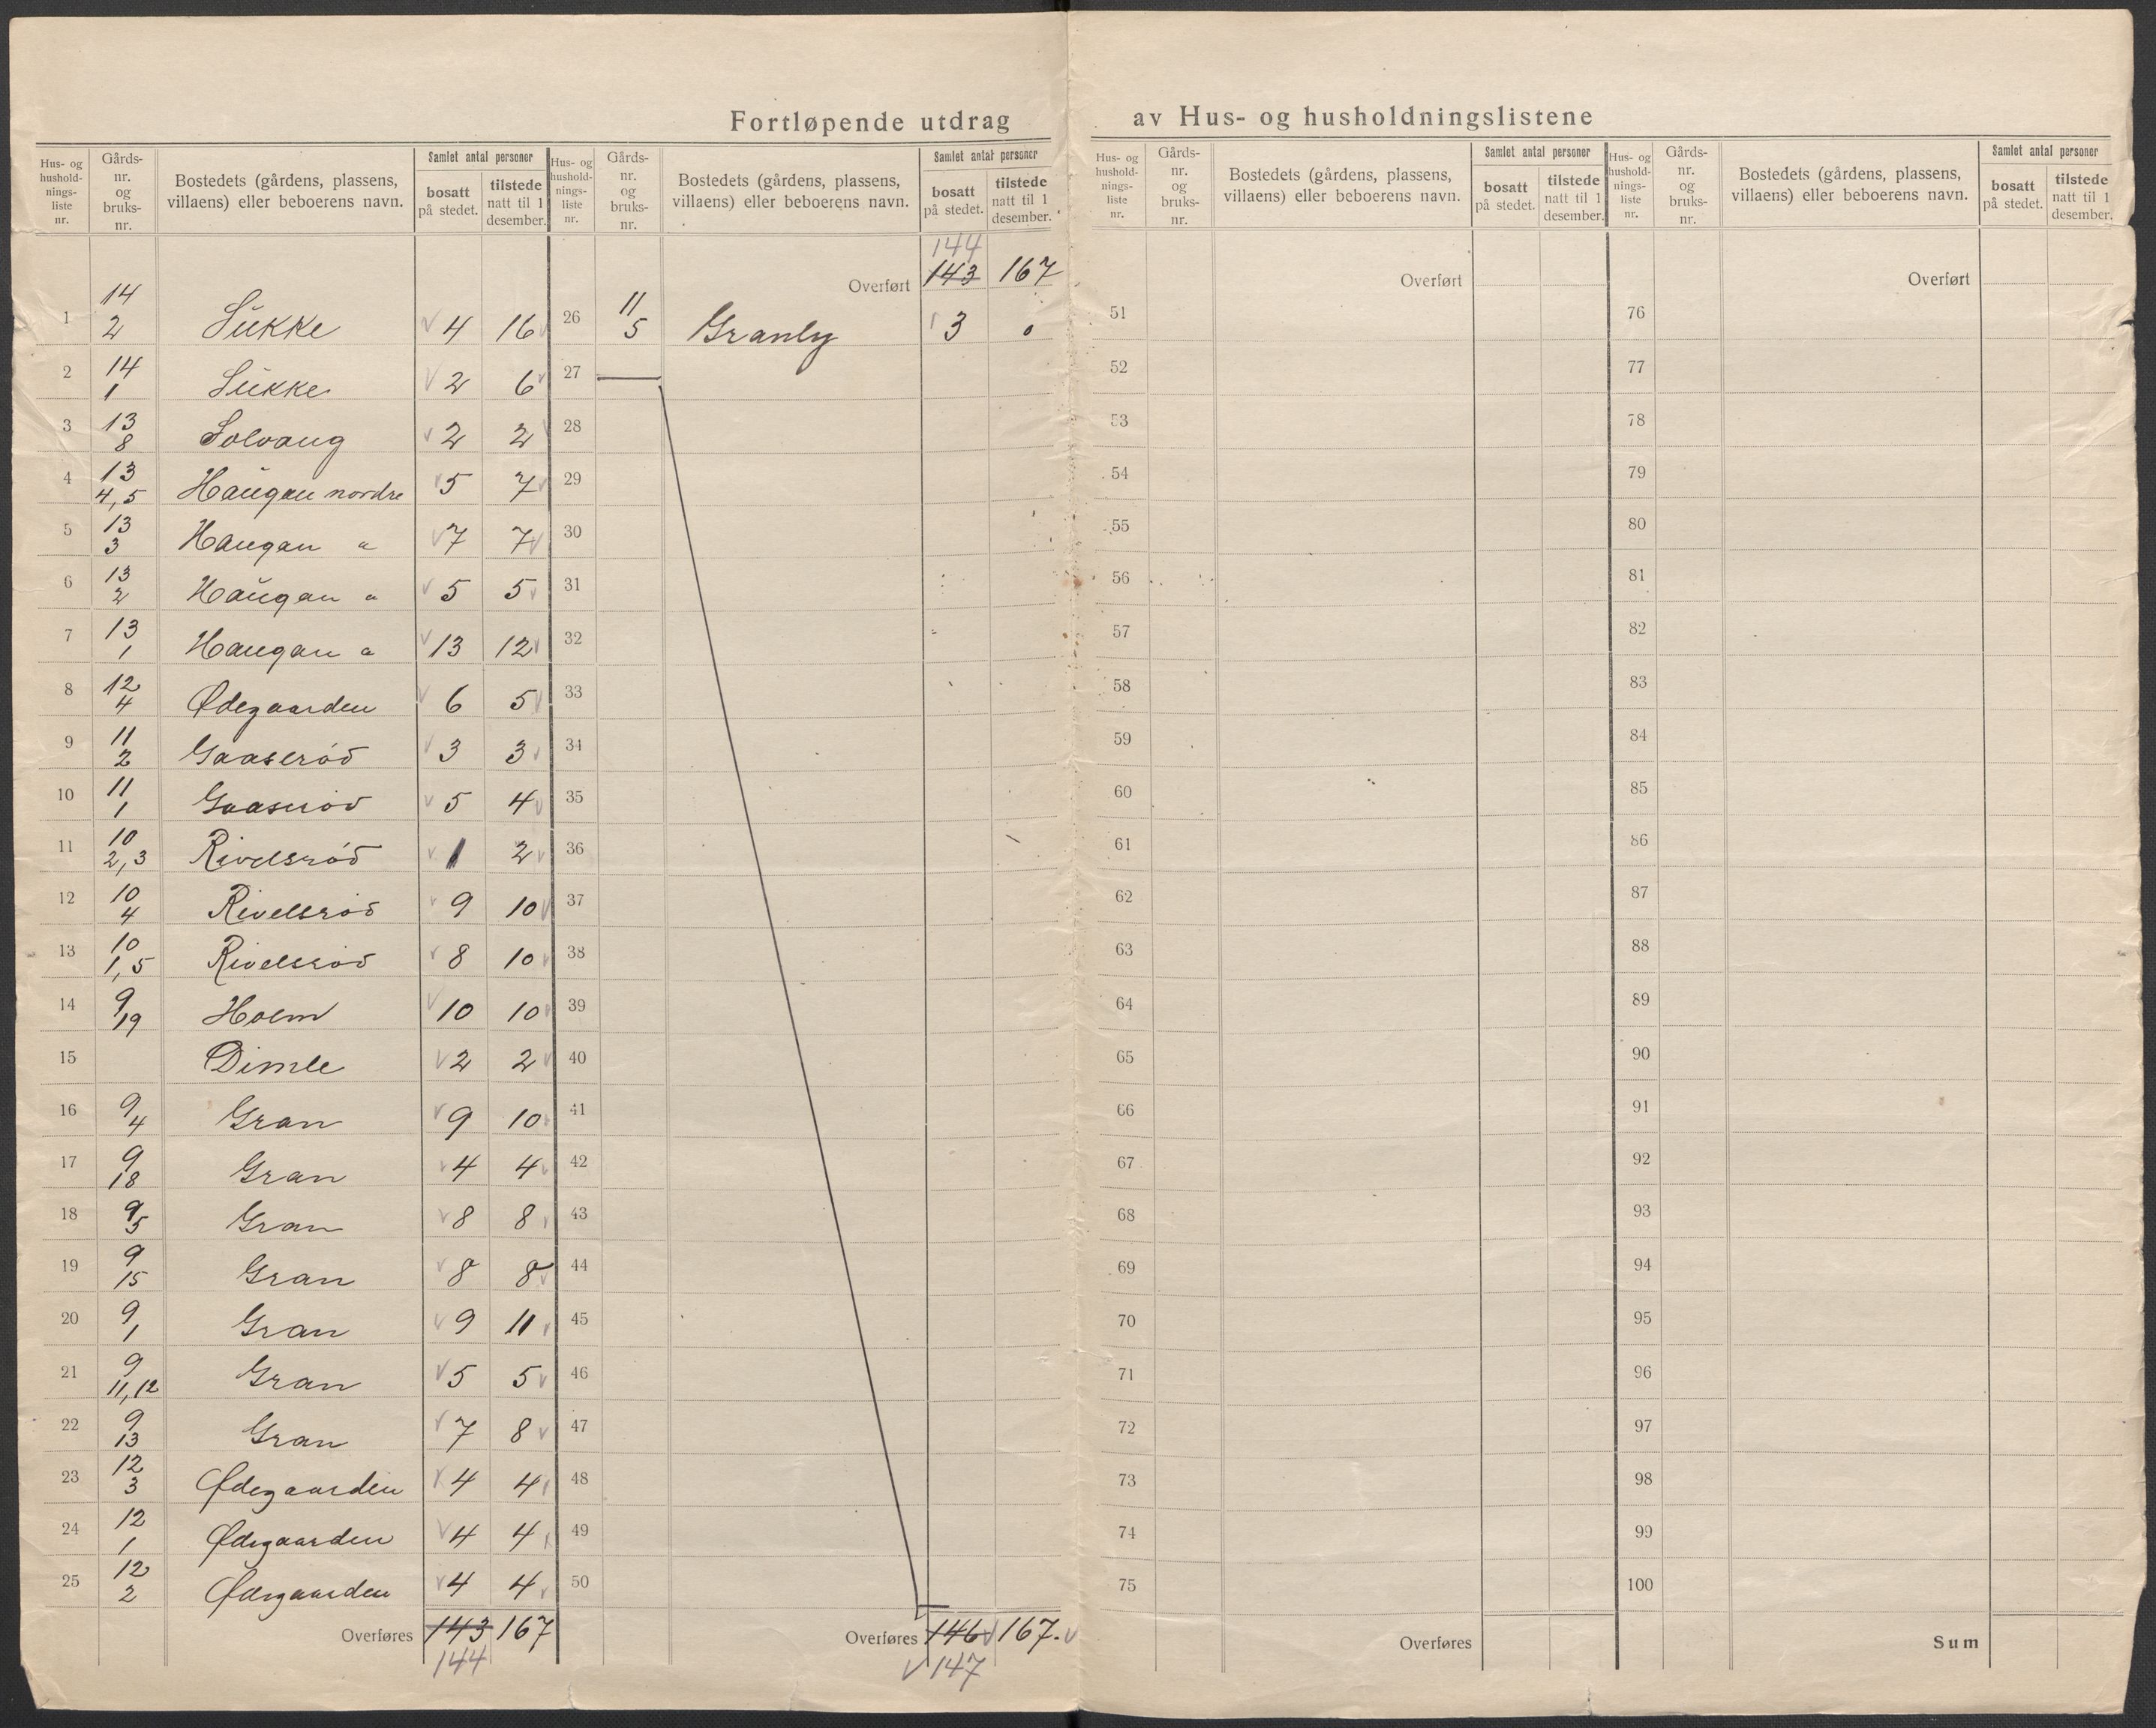 Fortløpende utdrag av Hus- og husholdningslistene
Hus- og husholdnings-liste nr. | Gårds-nr. og bruks-nr. | Bostedets (gårdens, plassens, villaens) eller beboerens navn. | Samlet antal personer | bosatt på stedet. | tilstede natt til 1 desember.
1 | 14 2 | Sukke | 4 | 16
2 | 14 1 | Sukke | 2 | 6
3 | 13 8 | Solvang | 2 | 2
4 | 13 4,5 | Haugan nordre | 5 | 7
5 | 13 3 | Haugan " | 7 | 7
6 | 13 2 | Haugan " | 5 | 5
7 | 13 1 | Haugan " | 13 | 12
8 | 12 4 | Ødegaarden | 6 | 5
9 | 11 2 | Gaaserød | 3 | 3
10 | 11 1 | Gaaserød | 5 | 4
11 | 10 2,3 | Rivelsrød | 1 | 2
12 | 10 4 | Rivelsrød | 9 | 10
13 | 10 1,5 | Rivelsrød | 8 | 10
14 | 9 19 | Holm | 10 | 10
15 | Dimle | 2 | 2
16 | 9 4 | Gran | 9 | 10
17 | 9 18 | Gran | 4 | 4
18 | 9 5 | Gran | 8 | 8
19 | 9 15 | Gran | 8 | 8
20 | 9 1 | Gran | 9 | 11
21 | 9 11,12 | Gran | 5 | 5
22 | 9 13 | Gran | 7 | 8
23 | 12 3 | Ødegaarden | 4 | 4
24 | 12 1 | Ødegaarden | 4 | 4
25 | 12 2 | Ødegaarden | 4 | 4
Overføres | 143 | 167
144
Hus- og husholdnings-liste nr. | Gårds-nr. og bruks-nr. | Bostedets (gårdens, plassens, villaens) eller beboerens navn. | Samlet antal personer | bosatt på stedet. | tilstede natt til 1 desember.
144
Overført | 143 | 167
26 | 11 5 | Granly | 3 | 0
27
28
29
30
31
32
33
34
35
36
37
38
39
40
41
42
43
44
45
46
47
48
49
50
Overføres | 146 | 167.
147
Hus- og husholdnings-liste nr. | Gårds-nr. og bruks-nr. | Bostedets (gårdens, plassens, villaens) eller beboerens navn. | Samlet antal personer | bosatt på stedet. | tilstede natt til 1 desember.
Overført
51
52
53
54
55
56
57
58
59
60
61
62
63
64
65
66
67
68
69
70
71
72
73
74
75
Overføres
Hus- og husholdnings-liste nr. | Gårds-nr. og bruks-nr. | Bostedets (gårdens, plassens, villaens) eller beboerens navn. | Samlet antal personer | bosatt på stedet. | tilstede natt til 1 desember.
Overført
76
77
78
79
80
81
82
83
84
85
86
87
88
89
90
91
92
93
94
95
96
97
98
99
100
Sum